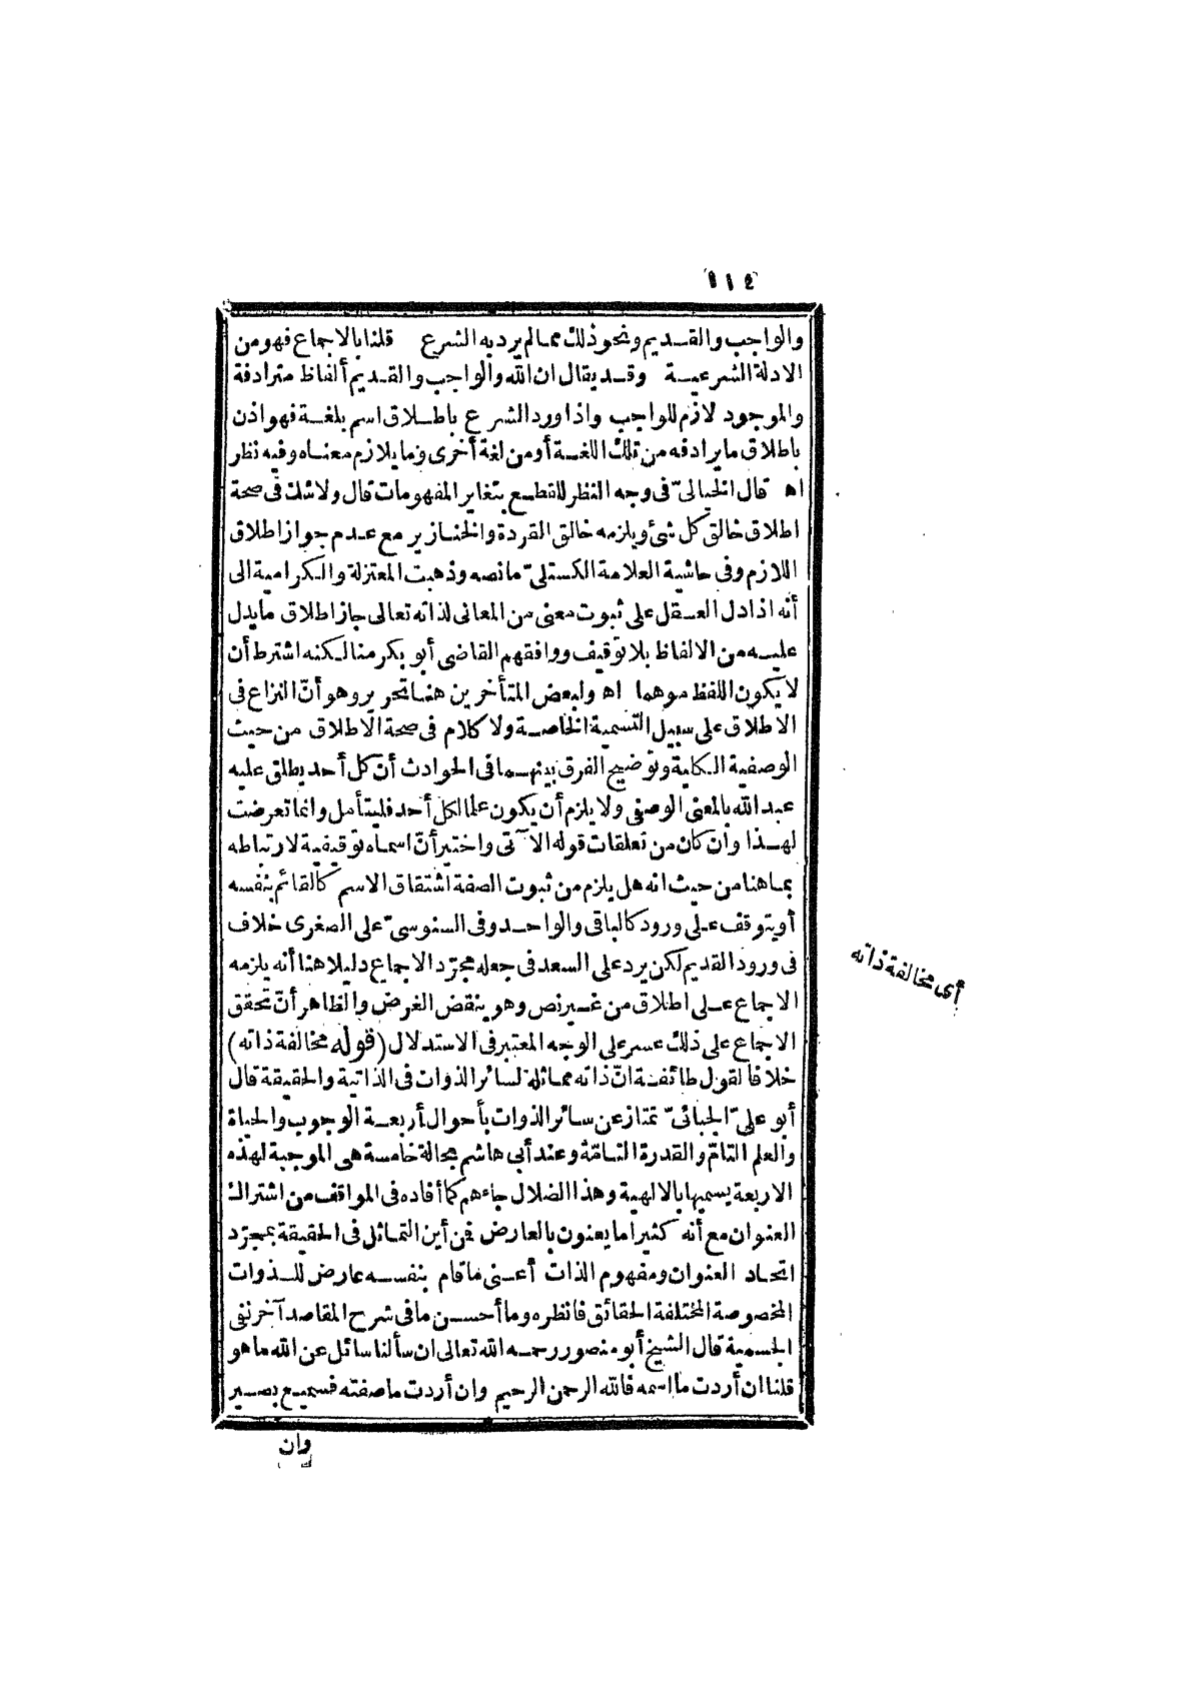 ١١٤
والواجب والقديم ونحو ذلك مما لم يرد به الشرع قلنا بالاجماع فهو من
الادلة الشرعية وقد يقال ان الله والواجب والقديم ألفاظ مترادفة
والموجود لازم للواجب واذا ورد الشرع باطلاق اسم بلغة فهو اذن
باطلاق ما يرادفه من تلك اللغة أو من لغة أخرى وما يلازم معناه وفيه نظر
اه قال الخيالىّ فى وجه النظر للقطع بتغاير المفهومات قال ولا شك فى صحة
اطلاق خالق كل شئ ويلزمه خالق القردة والخنازير مع عدم جواز اطلاق
اللازم وفى حاشية العلامة الكستلىّ ما نصه وذهبت المعتزلة والكرامية الى
أنه اذا دل العقل على ثبوت معنى من المعانى لذاته تعالى جاز اطلاق ما يدل
عليه من الالفاظ بلا توقيف ووافقهم القاضى أبو بكر منا لكنه اشترط أن
لا يكون اللفظ موهما اه ولبعض المتأخرين هنا تحرير وهو أنّ النزاع فى
الاطلاق على سبيل التسمية الخاصة ولا كلام فى صحة الاطلاق من حيث
الوصفية الكلية وتوضيح الفرق بينهما فى الحوادث أن كل أحد يطلق عليه
عبد الله بالمعنى الوصفى ولا يلزم أن يكون علما لكل أحد فليتأمل وانما تعرضت
لهذا وان كان من تعلقات قوله الآتى واختير أنّ اسماه توقيفية لارتباطه
بما هنا من حيث انه هل يلزم من ثبوت الصفة اشتقاق الاسم كالقائم بنفسه
أو يتوقف على ورود كالباقى والواحد وفى السنوسىّ على الصغرى خلاف
فى ورود القديم لكن يرد على السعد فى جعله مجرّد الاجماع دليلا هنا أنه يلزمه
الاجماع على اطلاق من غير نص وهو ينقض الغرض والظاهر أنّ تحقق
الاجماع على ذلك عسر على الوجه المعتبر فى الاستدلال (قوله مخالفة ذاته)
خلافا لقول طائفة انّ ذاته مماثلة لسائر الذوات فى الذاتية والحقيقة قال
أبو علىّ الجبائىّ تمتاز عن سائر الذوات بأحوال أربعة الوجوب والحياة
والعلم التامّ والقدرة التامّة وعند أبى هاشم بحالة خامسة هى الموجبة لهذه
الاربعة يسميها بالالهية وهذا الضلال جاءهم كما أفاده فى المواقف من اشتراك
العنوان مع أنه كثيرا ما يعنون بالعارض فمن أين التماثل فى الحقيقة بمجرّد
اتحاد العنوان ومفهوم الذات أعنى ما قام بنفسه عارض للذوات
المخصوصة المختلفة الحقائق فانظره وما أحسن ما فى شرح المقاصد آخر نفى
الجسمية قال الشيخ أبو منصور رحمه الله تعالى ان سألنا سائل عن الله ما هو
قلنا ان أردت ما اسمه فالله الرحمن الرحيم وان أردت ما صفته فسميع بصير
وان
أى مخالفة ذاته